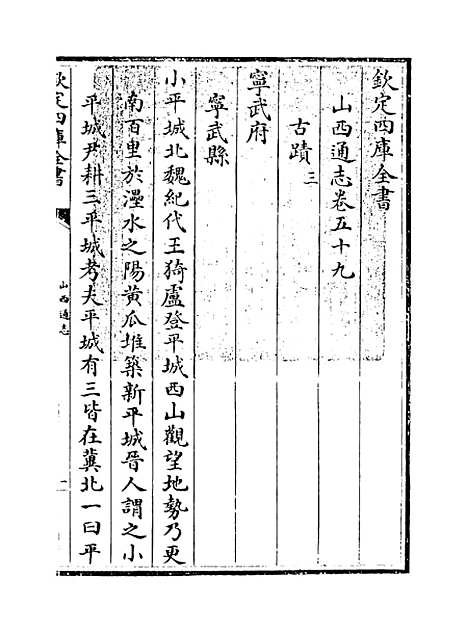 欽定四庫全書
山西通志卷五十九
古蹟三
寧武府
寧武縣
小平城北魏紀代王猗盧登平城西山觀望地勢乃更
南百里於㶟水之陽黃瓜堆築新平城晉人謂之小
平城尹耕三平城考夫平城有三皆在冀北一曰平
欽定四庫全書
山西通志
一